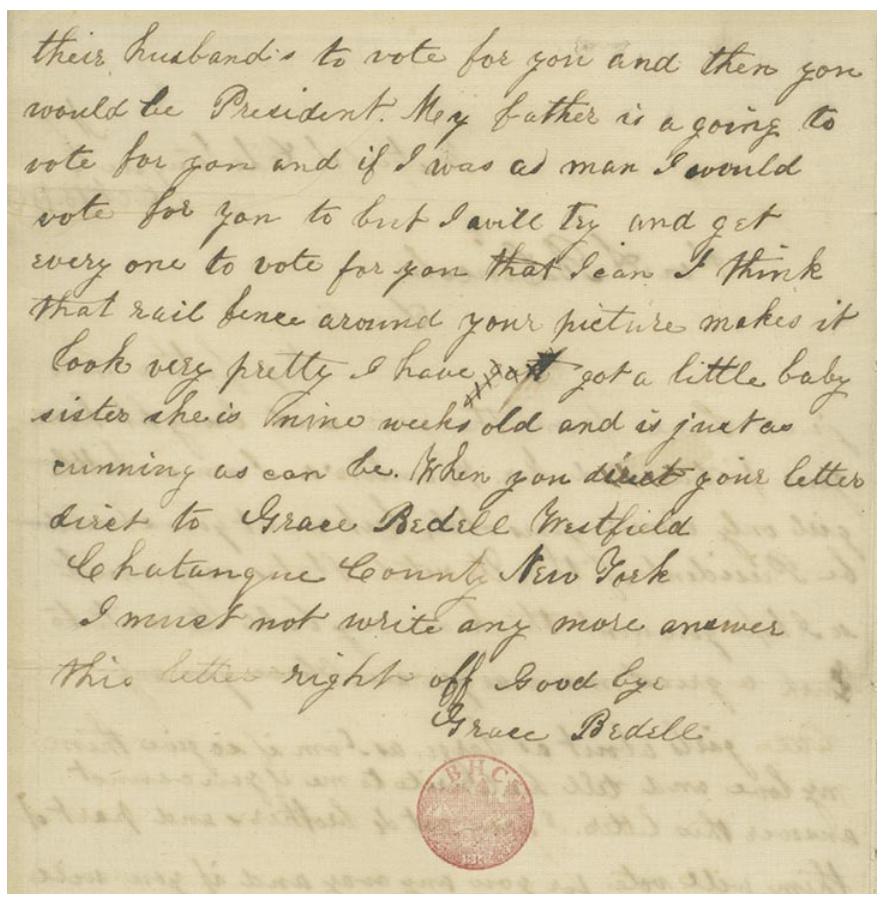 their husband's to vote for you and then you
would be President. My father is a going to
vote for you and if I was a man I would
vote for you to but I will try and get
every one to vote for you that I can I think
that rail fence around your picture makes it
look very pretty I have got a little baby
sister she is nine weeks old and is just as
cunning as can be. When you direct your letter
direct to Grace Bedell Westfield
Chatauque County New York
I must not write any more answer
this letter right off Good bye
Grace Bedell
BHC